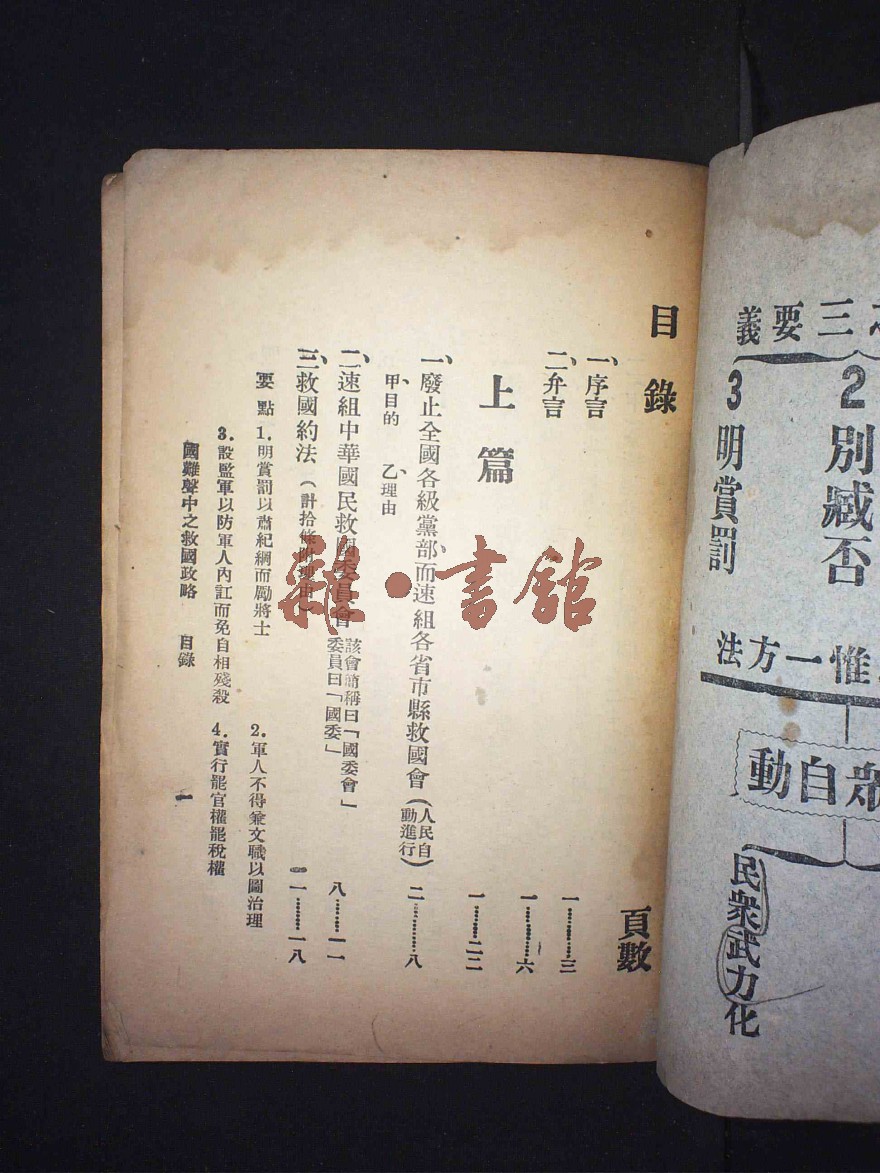 之三要義
2別臧否
3明賞罰
惟一方法
眾自動
民眾武力化
目錄 頁數
一、序言 一………三
二、弁言 一………六
上篇 一………二二
一、廢止全國各級黨部、而速組各省市縣救國會(人民自動進行) 二………八
甲、目的 乙、理由
二、速組中華國民救國委員會 該會簡稱曰「國委會」委員曰「國委」 八………一一
三、救國約法(計拾條附理由) 一一………一八
要點 1.明賞罰以肅紀綱而勵將士 2.軍人不得兼文職以圖治理
3.設監軍以防軍人內訌而免自相殘殺 4.實行罷官權罷稅權
國難聲中之救國政略 目錄 一
雜·書館